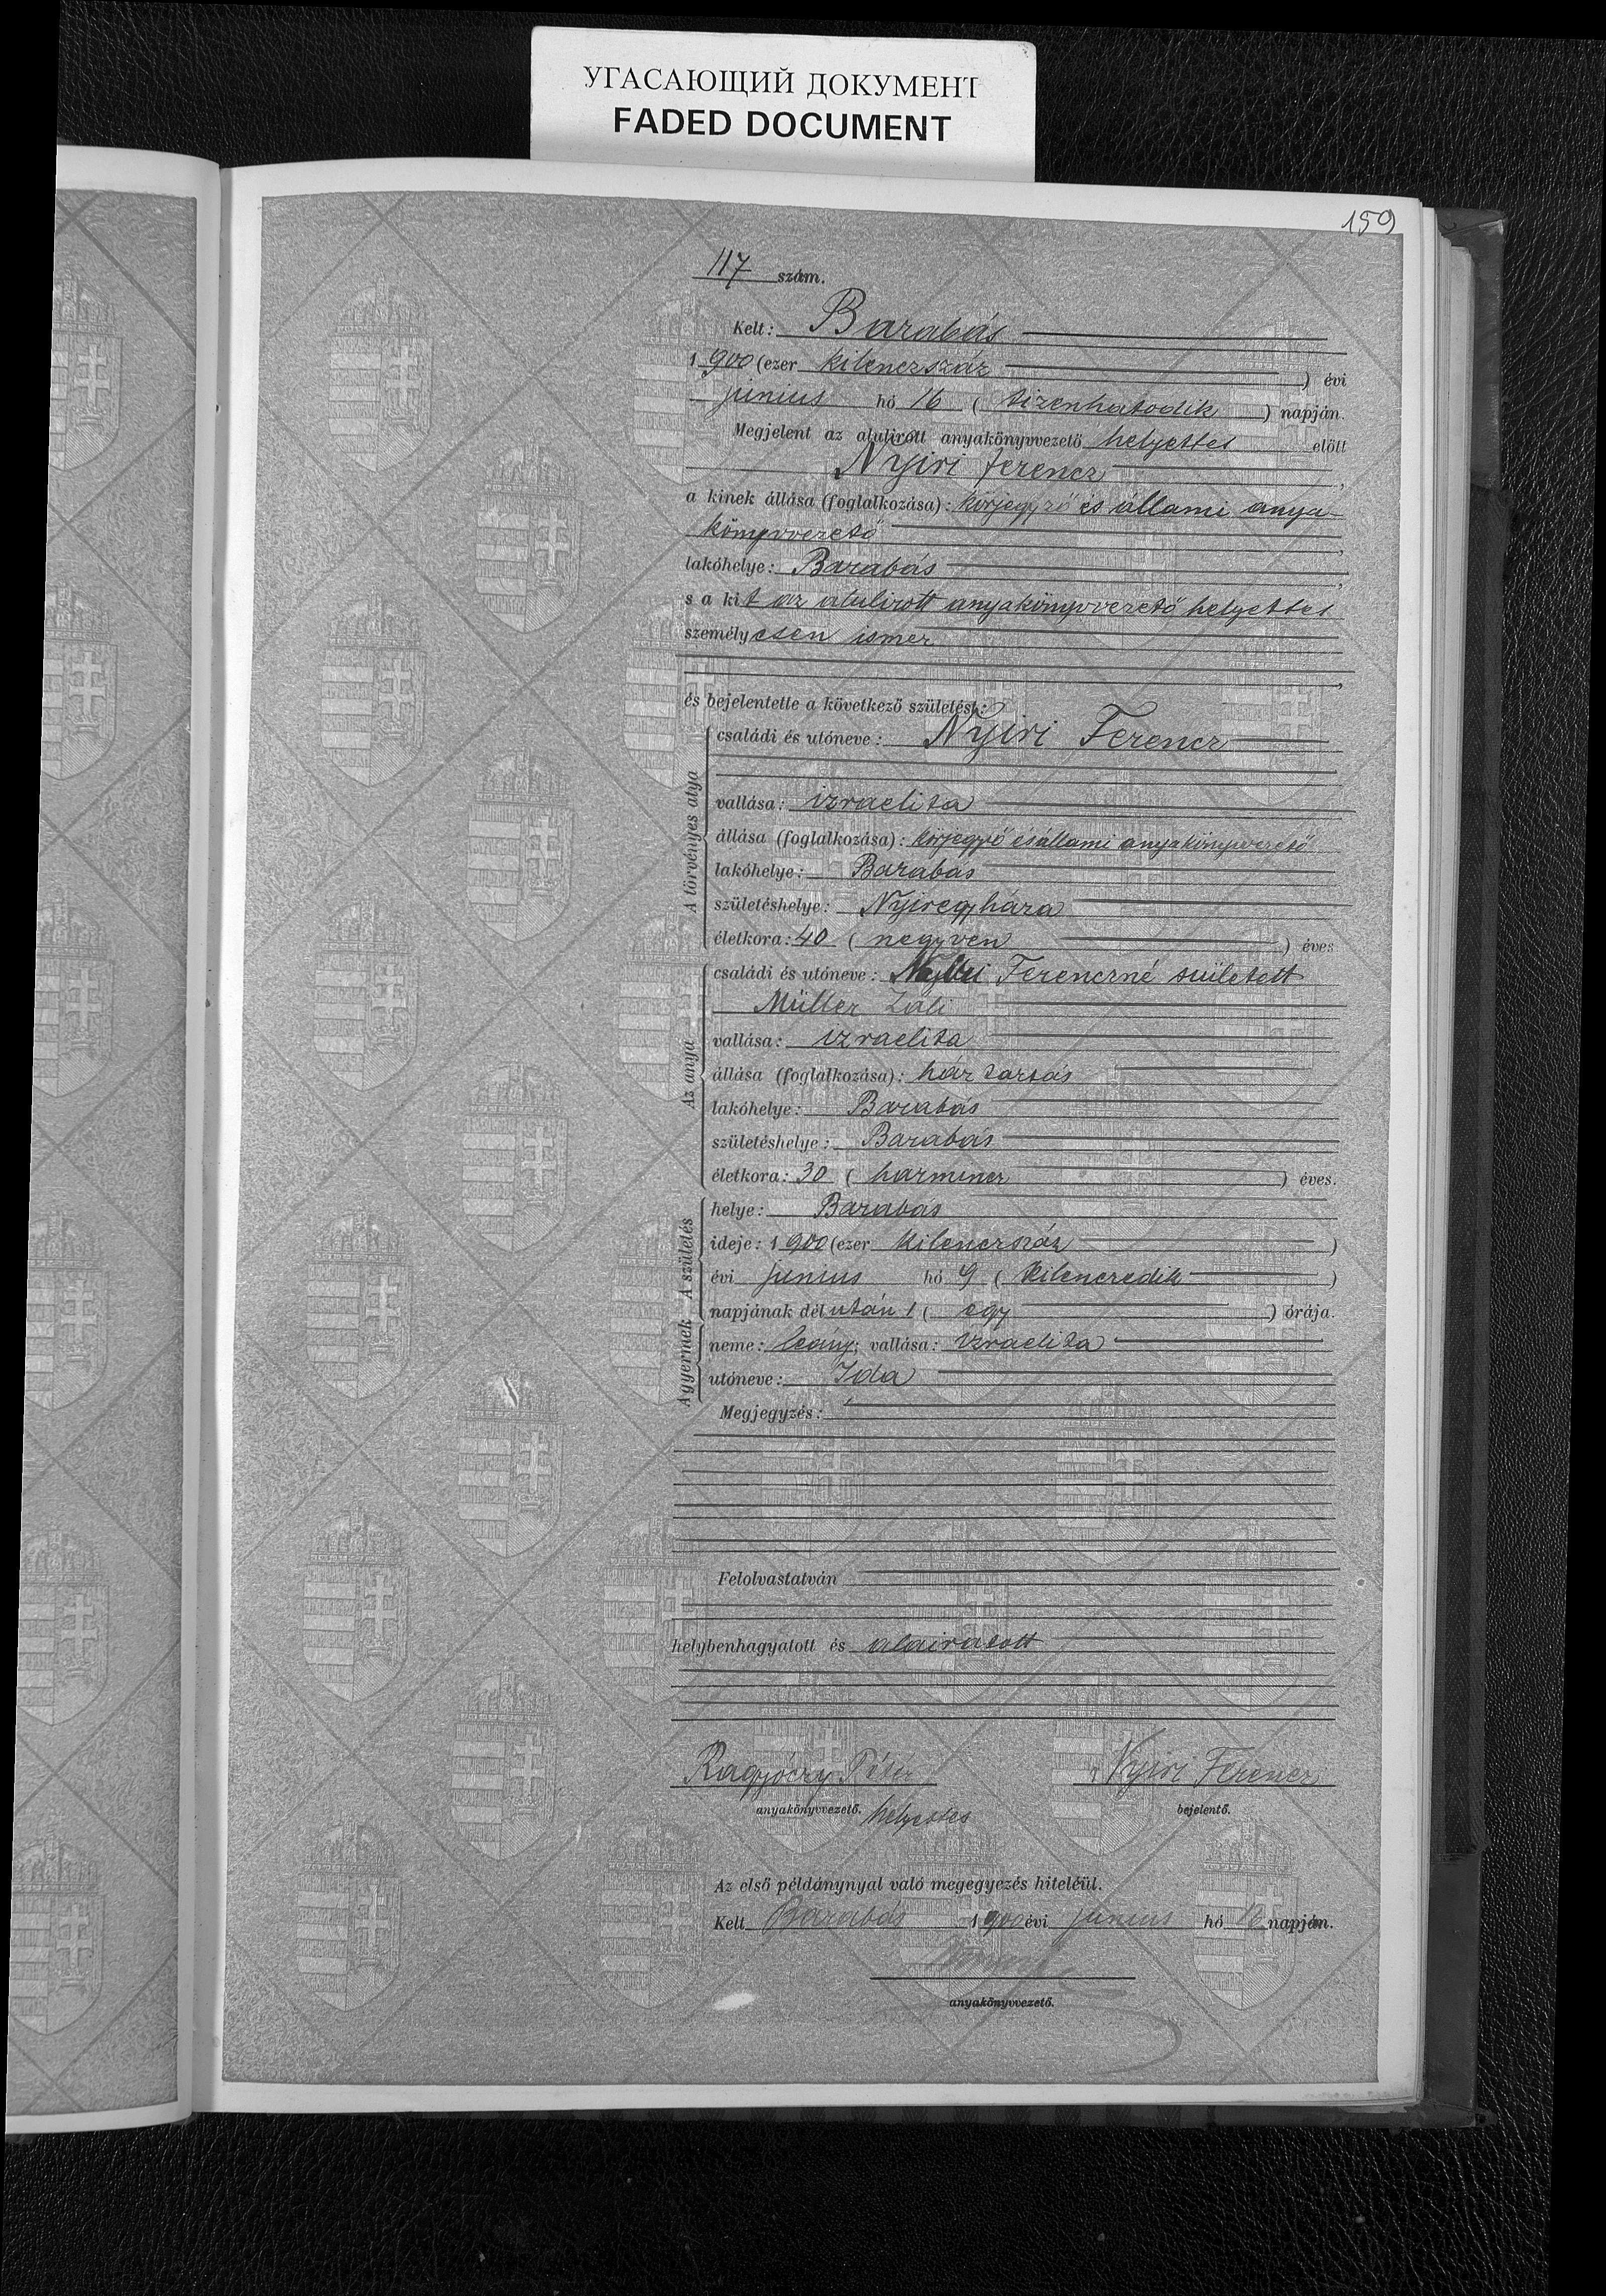 УГАСАЮЩИЙ ДОКУМЕНТ
FADED DOCUMENT
159
117 szám.
Kelt: Barabás
1900 (ezer kilenczszáz ) évi
junius hó 16 ( tizenhatodik ) napján.
Megjelent az alulirott anyakönyvvezető helyettes előtt
Nyiri Ferencz,
a kinek állása (foglalkozása): körjegyző és állami anya-
könyvvezető,
lakóhelye: Barabás,
s a kit az alulirott anyakönyvvezető helyettes
személyesen ismer
,
és bejelentette a következő születést:
A törvényes atya
családi és utóneve: Nyiri Ferencz
vallása: izraelita
állása (foglalkozása): körjegyző és állami anyakönyvvezető
lakóhelye: Barabás
születéshelye: Nyiregyháza
életkora: 40 ( negyven ) éves
Az anya
családi és utóneve: Nyiri Ferenczné született
Müller Záli
vallása: izraelita
állása (foglalkozása): háztartás
lakóhelye: Barabás
születéshelye: Barabás
életkora: 30 ( harmincz ) éves.
A születés
helye: Barabás
ideje: 1900 (ezer kilenczszáz )
évi junius hó 9 ( kilenczedik )
napjának dél után 1 ( egy ) órája.
A gyermek
neme: leány; vallása: izraelita
utóneve: Ida
Megjegyzés:
Felolvastatván
helybenhagyatott és aláiratott
Péter Nyiri Ferencz
anyakönyvvezető. helyettes bejelentő.
Az első példánynyal való megegyezés hiteléül.
Kelt Barabás 1900 évi junius hó napján.
anyakönyvvezető.